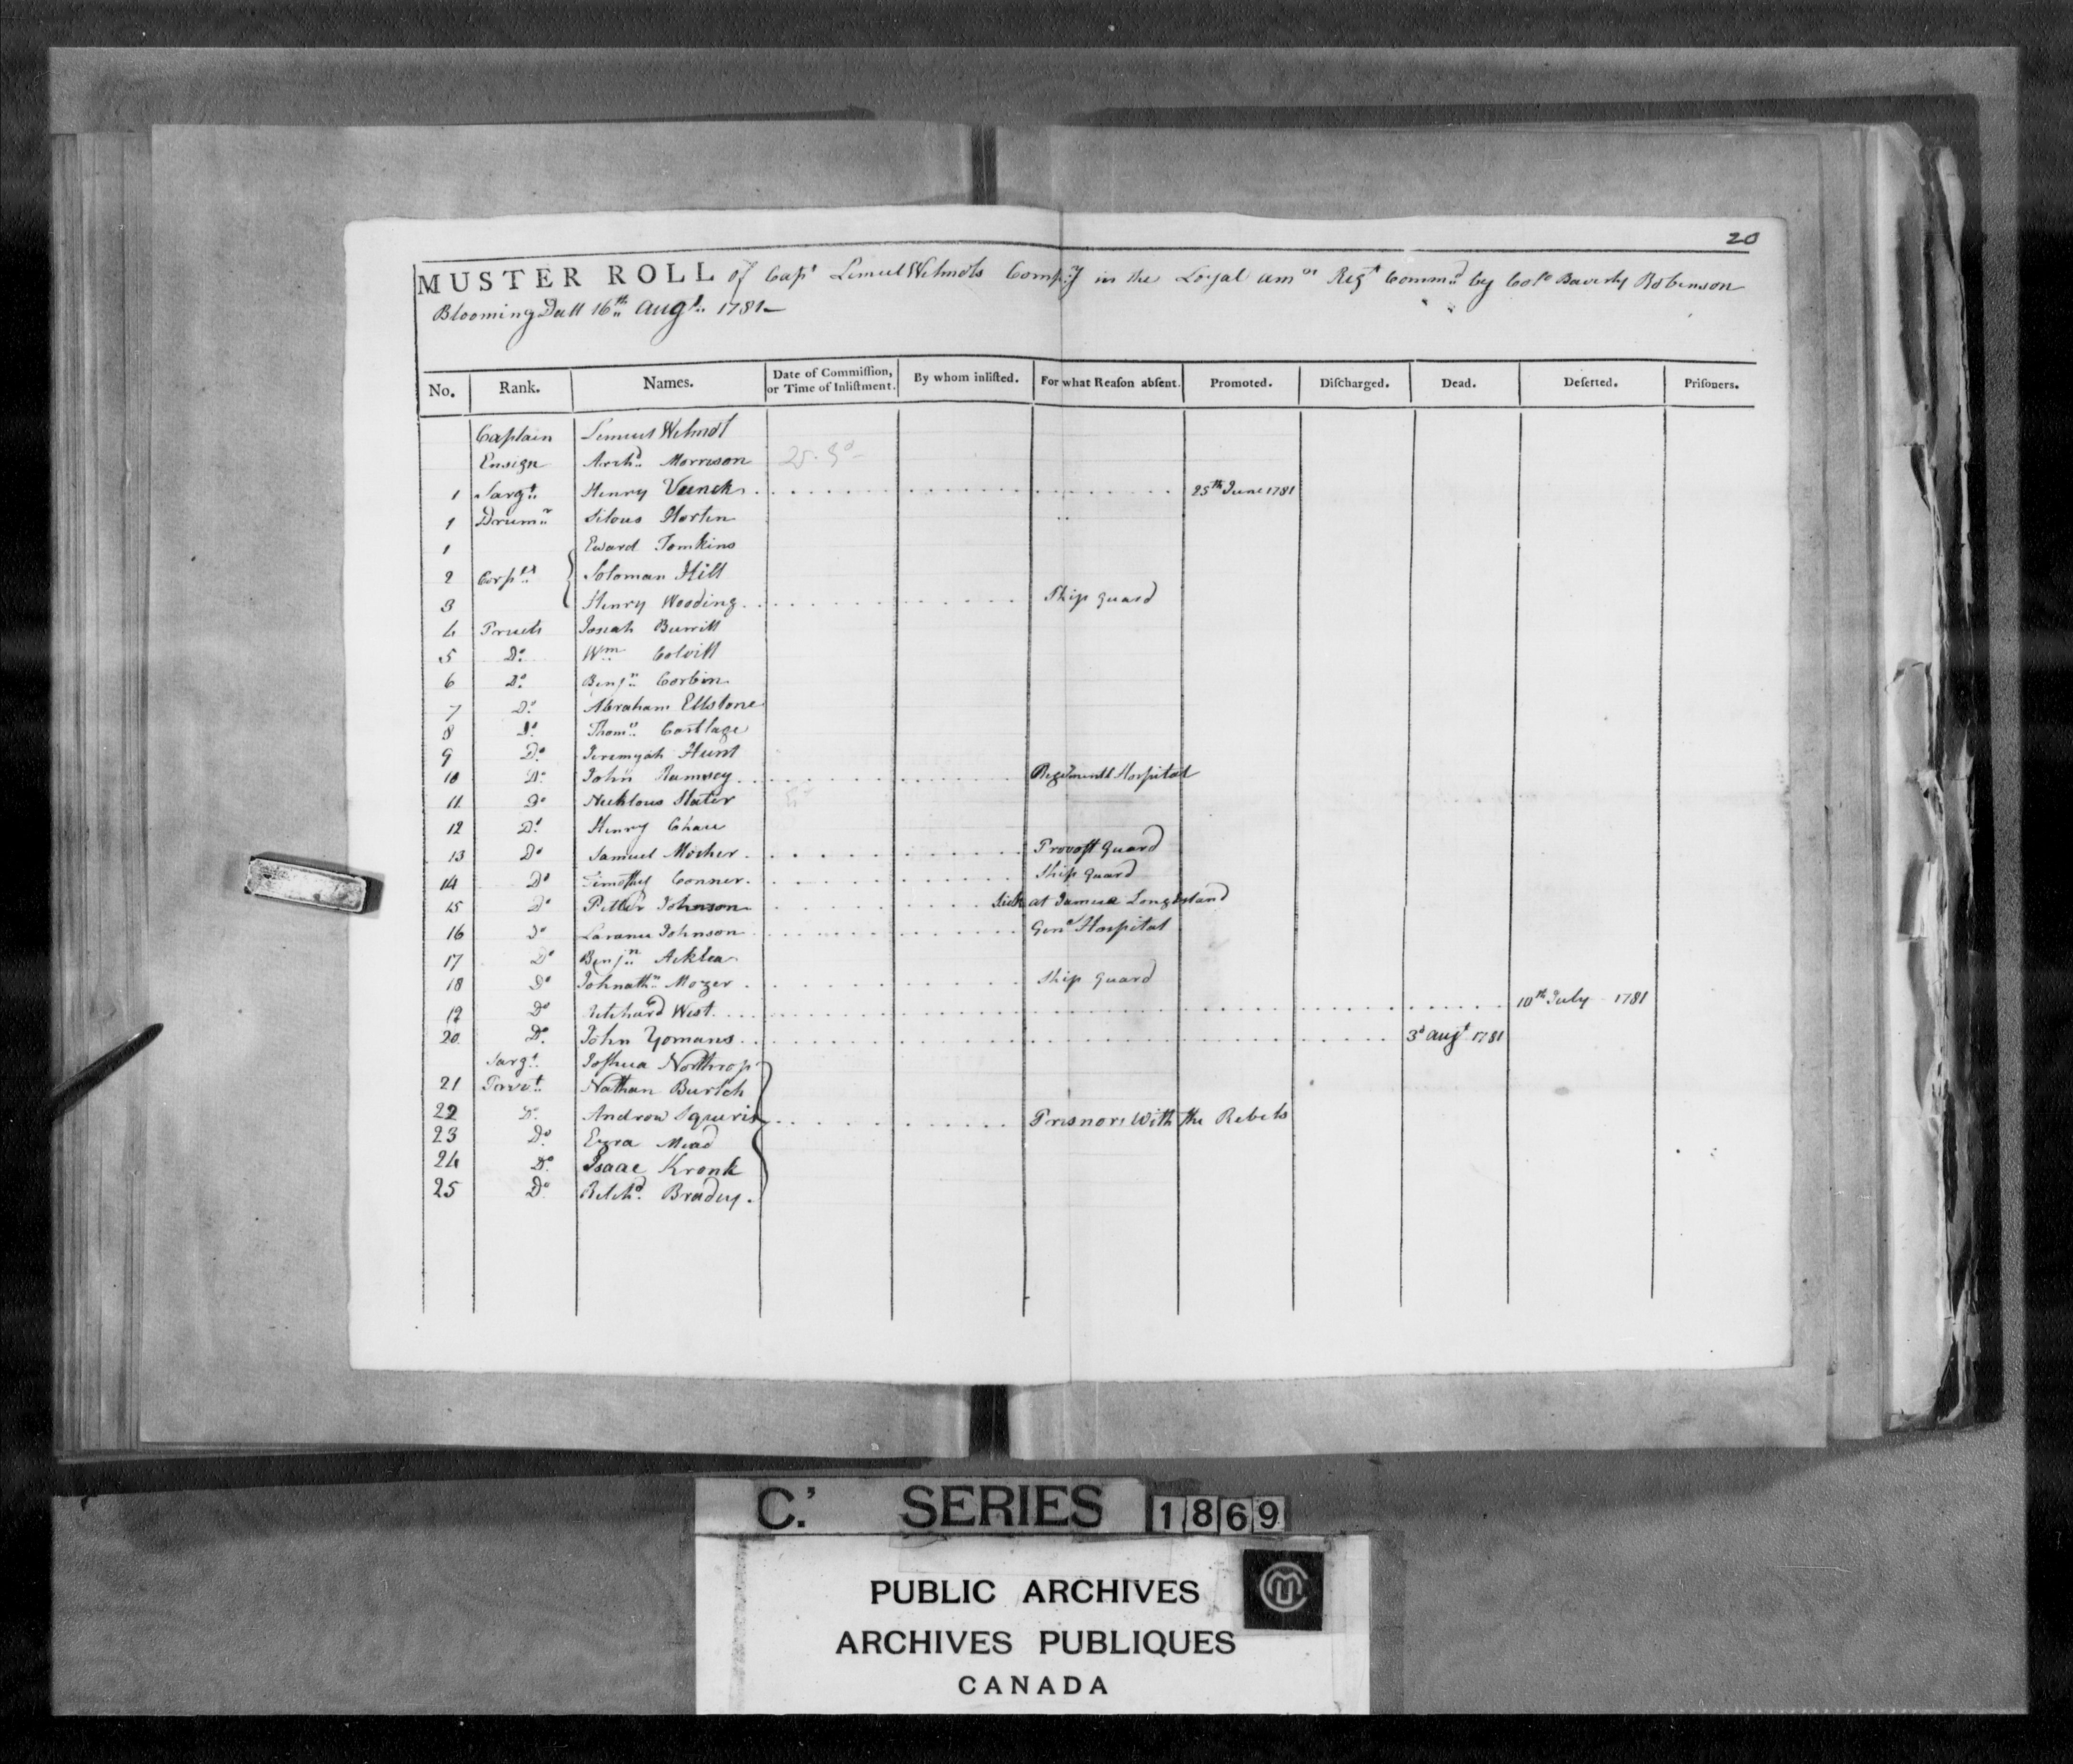 20
MUSTER ROLL of Capt Lemuel Wilmots Compy in the Loyal amn Regt Commd by Colo Baverly Robinson
Blooming Dall 16th Augt 1781
No. Rank. Names. Date of Commiſſion, or Time of Inliſtment. By whom inliſted. For what Reaſon abſent. Promoted. Diſcharged. Dead. Deſerted. Priſoners.
Captain Lemuel Wilmot
Ensign Archd Morrison
1 Sargt Henry Vunck 25th June 1781
1 Drumr Silous Horten
1 Eward Tomkins
2 Corpls Soloman Hill
3 Henry Wooding Ship Guard
4 Josiah Burrill
5 Do Wm Colvill
6 Do Benjn Corbin
7 Do Abraham Ellstone
8 Do Thoms Cartlage
9 Do Jeremyah Hunt
10 Do John Rumsey Hospital
11 Do Slater
12 Do Henry Chace
13 Do Samuel Mosher Provost Guard
14 Do Timothy Conner Ship Guard
15 Do Petter Johnson Sick at Long Island
16 Do Johnson Genl Hospital
17 Do Benjn Acklea
18 Do Johnathn Mozer Ship Guard
19 Do Ritchard West 10th July 1781
20 Do John Yomans 3d Augt 1781
Sargt Joshua Northrop
21 Navhan Burtch
22 Do Androw Squiris Prisnors With the Rebels
23 Do Ezra Mead
24 Do Isaac Kronk
25 Do Ritchd Bradey
C.' SERIES 1869
PUBLIC ARCHIVES
ARCHIVES PUBLIQUES
CANADA